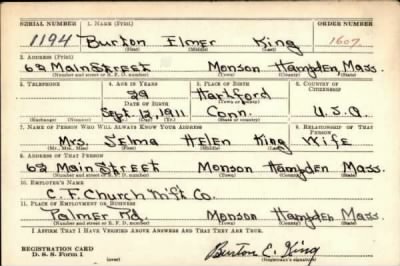 SERIAL NUMBER 1. NAME (Print) ORDER NUMBER
1194 Burton Elmer King 1607
(First) (Middle) (Last)
2. ADDRESS (Print)
62 Main Street Monson Hampden, Mass.
(Number and street or R. F. D. number) (Town) (County) (State)
3. TELEPHONE 4. AGE IN YEARS 5. PLACE OF BIRTH 6. COUNTRY OF CITIZENSHIP
29 Hartford
DATE OF BIRTH (Town or county)
Sept. 1911 Conn. U.S.A.
(Exchange) (Number) (Mo.) (Day) (Yr.) (State or country)
7. NAME OF PERSON WHO WILL ALWAYS KNOW YOUR ADDRESS 8. RELATIONSHIP OF THAT PERSON
Mrs. Selma Helen King Wife
(Mr., Mrs., Miss) (First) (Middle) (Last)
9. ADDRESS OF THAT PERSON
62 Main Street Monson Hampden Mass.
(Number and street or R. F. D. number) (Town) (County) (State)
10. EMPLOYER'S NAME
C. F. Church Mft Co.
11. PLACE OF EMPLOYMENT OR BUSINESS
Palmer Rd. Monson Hampden Mass.
(Number and street or R. F. D. number) (Town) (County) (State)
I AFFIRM THAT I HAVE VERIFIED ABOVE ANSWERS AND THAT THEY ARE TRUE.
REGISTRATION CARD
D. S. S. Form 1 (over) Burton E. King
(Registrant's signature)